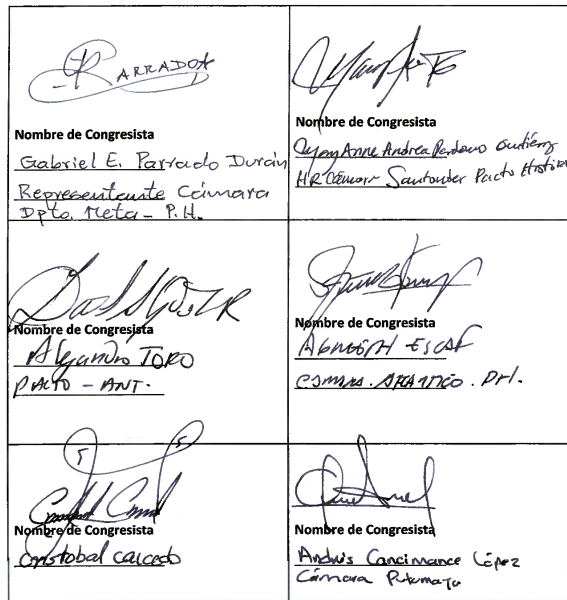 PARRADOA
Nombre de Congresista
Gabriel E. Parrado Durán
Representante Cámara
Dpto. Meta - P.H.
Nombre de Congresista
Mary Anne Andrea Perdomo Gutiérrez
HR Cámara Santander Pacto Histórico
Nombre de Congresista
Alejandro TORO
PACTO - ANT.
Nombre de Congresista
AGMETH ESCAF
CAMARA. ATLANTICO. PH.
Nombre de Congresista
Cristobal Caicedo
Nombre de Congresista
Andrés Cancimance López
Cámara Putumayo